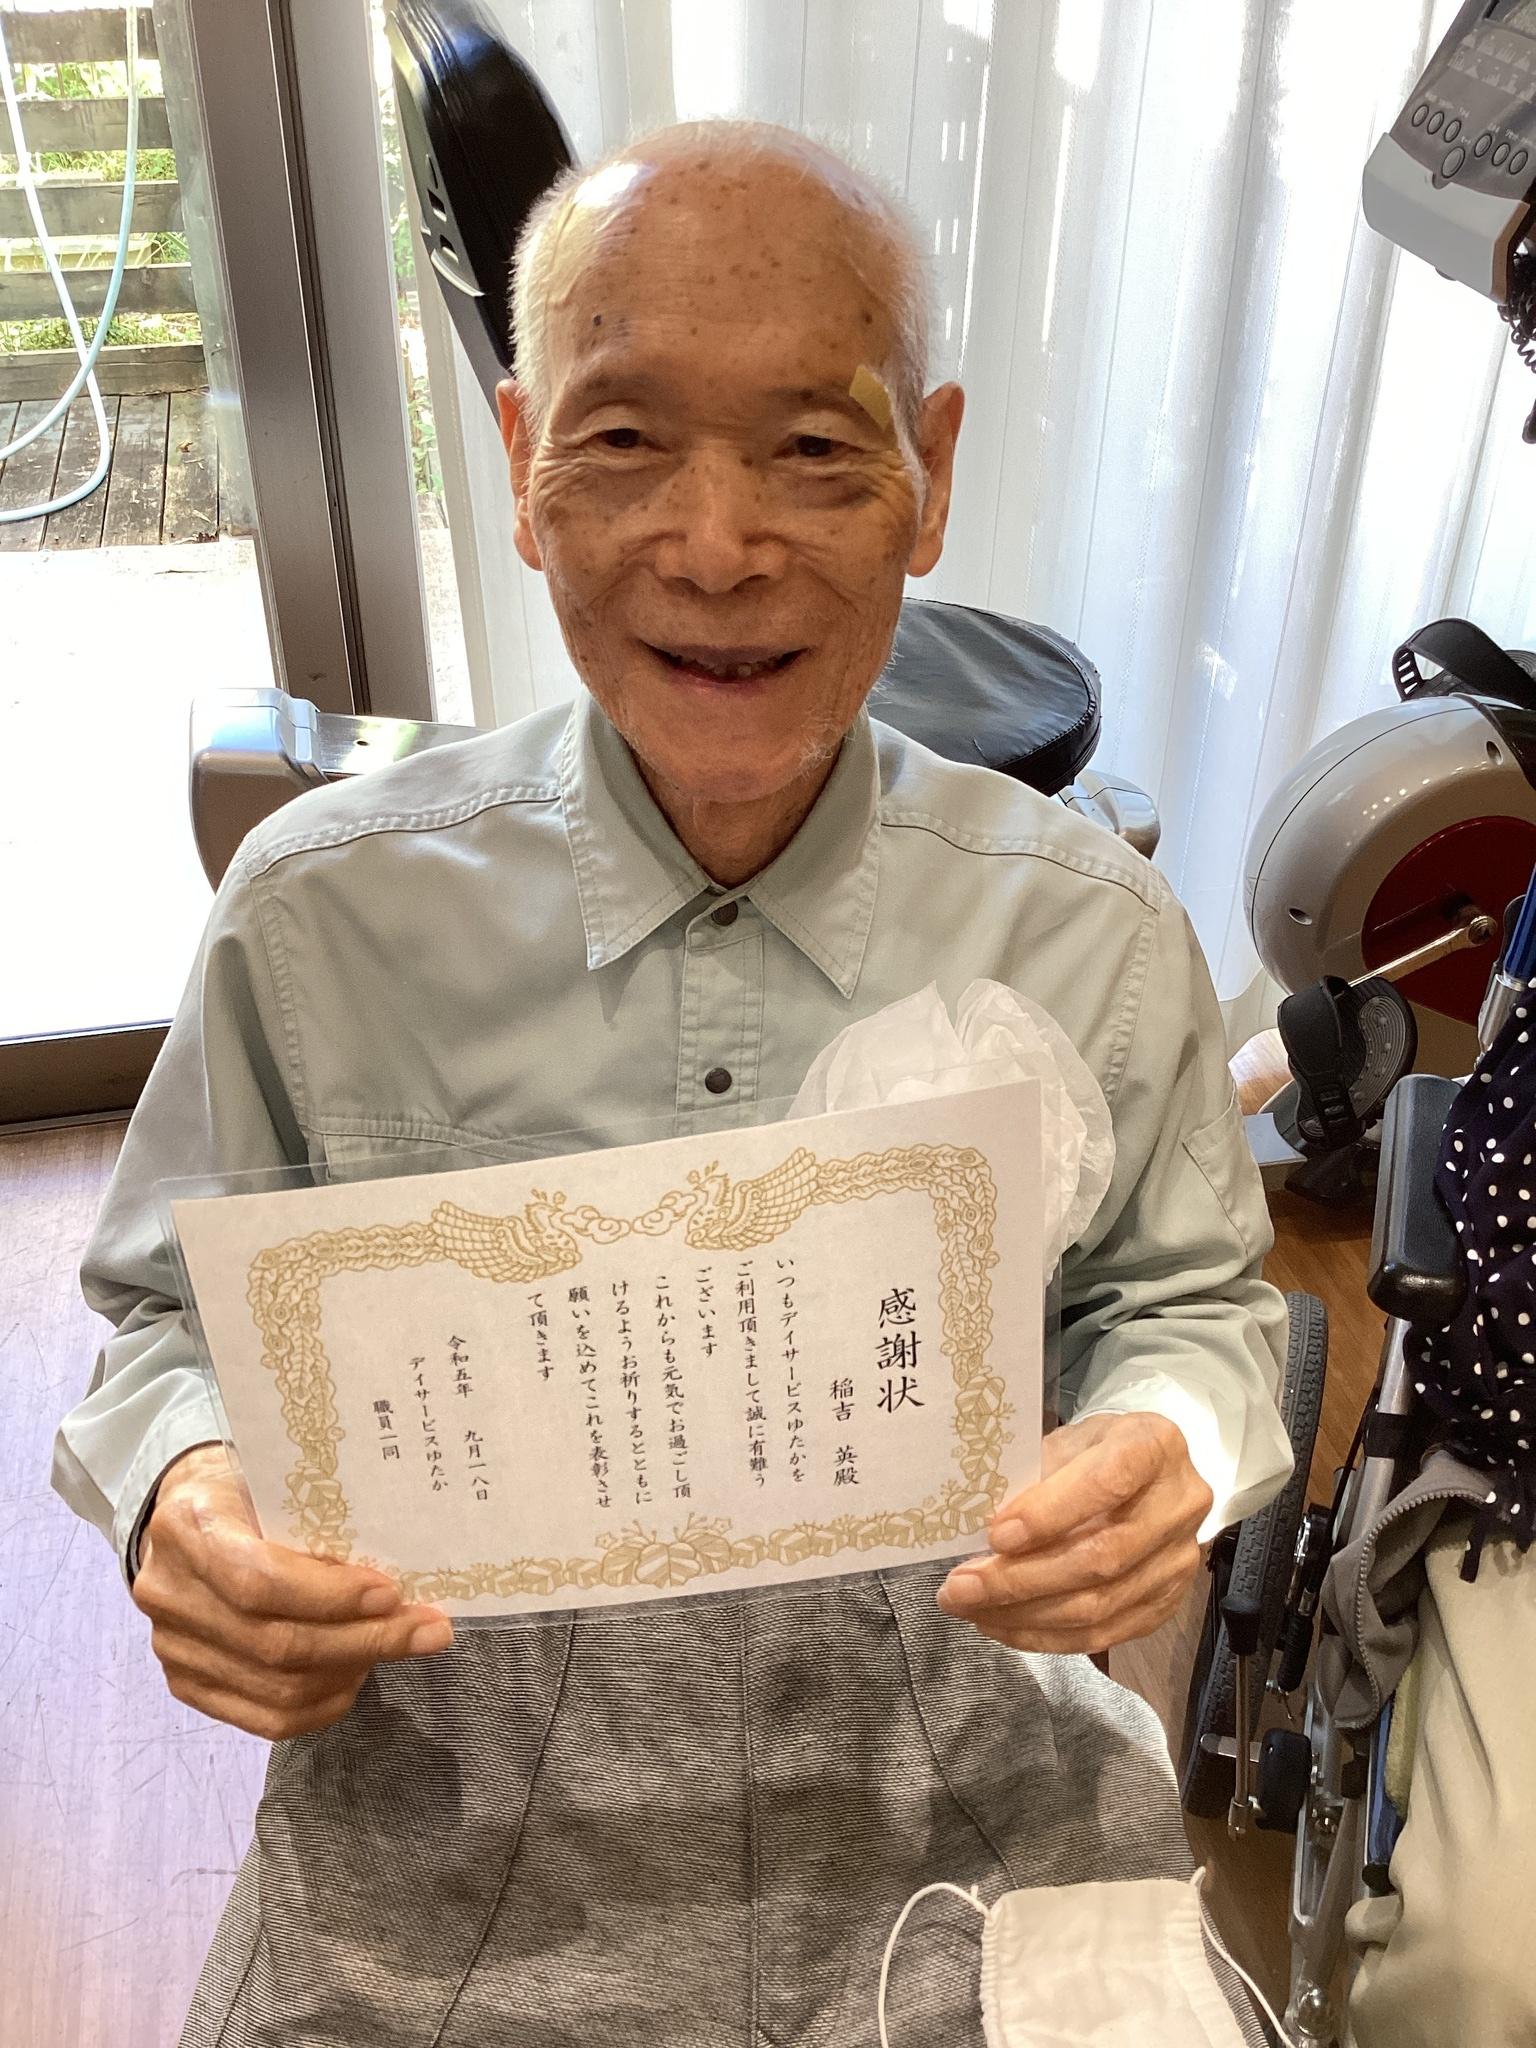 感謝状
稲吉　英殿
いつもデイサービスゆたかを
ご利用頂きまして誠に有難う
ございます
これからも元気でお過ごし頂
けるようお祈りするとともに
願いを込めてこれを表彰させ
て頂きます
令和五年　九月一八日
デイサービスゆたか
職員一同